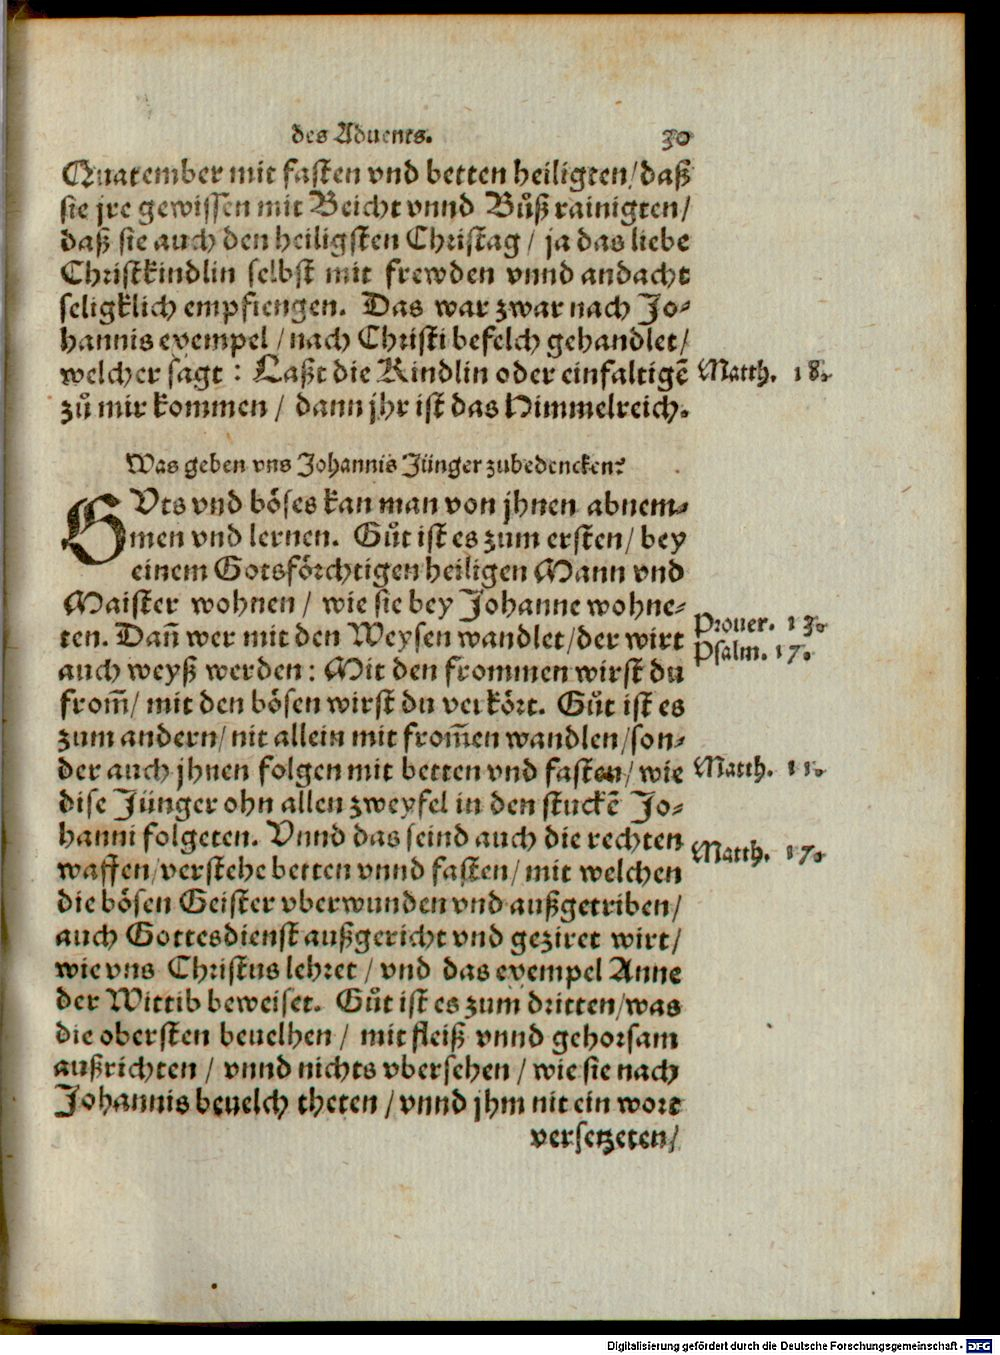 des Aduents. 30
Quatember mit fasten vnd betten heiligten/daß
sie jre gewissen mit Beicht vnnd Bůß rainigten/
daß sie auch den heiligsten Christag / ja das liebe
Christkindlin selbst mit frewden vnnd andacht
seligklich empfiengen. Das war zwar nach Jo⸗
hannis exempel / nach Christi befelch gehandlet/
welcher sagt : Laßt die Kindlin oder einfaltigē Matth. 18.
zů mir kommen / dann jhr ist das Himmelreich.
Was geben vns Johannis Jünger zubedencken?
GVts vnd böses kan man von jhnen abnem⸗
men vnd lernen. Gůt ist es zum ersten/ bey
einem Gotsförchtigen heiligen Mann vnd
Maister wohnen / wie sie bey Johanne wohne⸗
ten. Dañ wer mit den Weysen wandlet/der wirt
Prouer. 13.
auch weyß werden : Mit den frommen wirst du
Psalm. 17.
from̃/ mit den bösen wirst du verkört. Gůt ist es
zum andern/ nit allein mit from̃en wandlen/son⸗
der auch jhnen folgen mit betten vnd fasten/ wie
Matth. 11.
dise Jünger ohn allen zweyfel in den stuckē Jo⸗
hanni folgeten. Vnnd das seind auch die rechten
Matth. 17.
waffen/verstehe betten vnnd fasten/ mit welchen
die bösen Geister vberwunden vnd außgetriben/
auch Gottesdienst außgericht vnd geziret wirt/
wie vns Christus lehret / vnd das exempel Anne
der Wittib beweiset. Gůt ist es zum dritten/was
die obersten beuelhen / mit fleiß vnnd gehorsam
außrichten / vnnd nichts vbersehen / wie sie nach
Johannis beuelch theten / vnnd jhm nit ein wort
versetzeten/
Digitalisierung gefördert durch die Deutsche Forschungsgemeinschaft - DFG